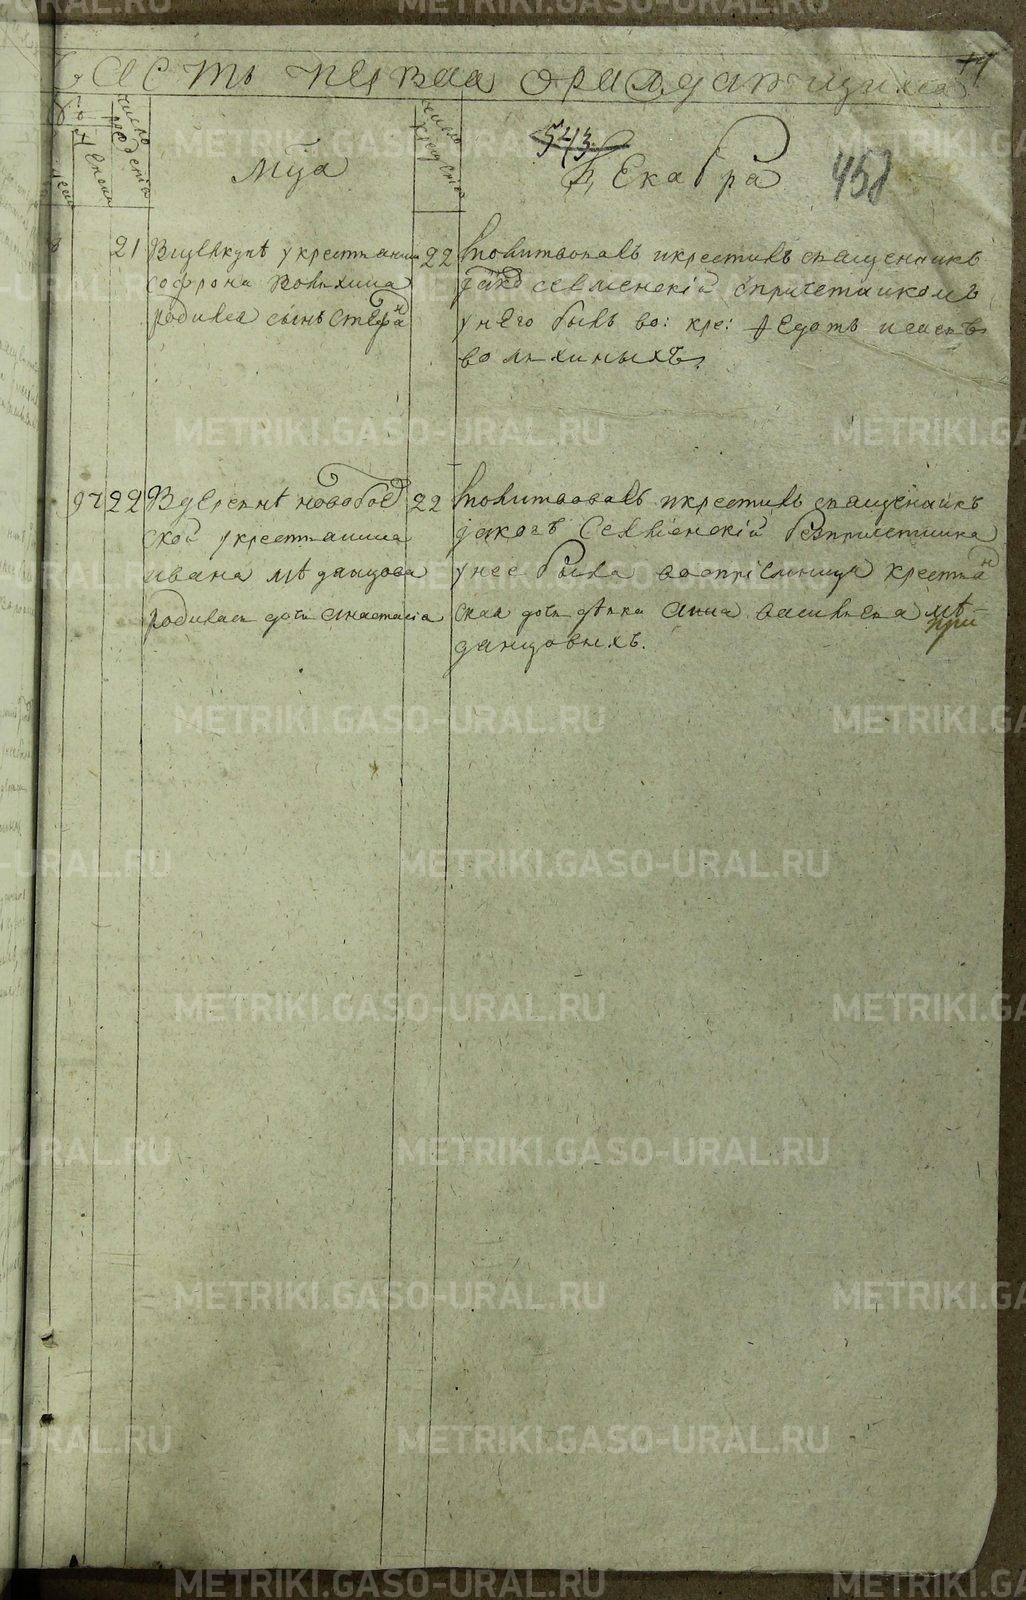 Часть первая о раждающихся
число рожденiя
Мц̃а
число крещенiя
543
Декабря
458
21 В Щелкунѣ у крестьянина
софрона Волыхина
родился сынъ Стефанъ
22 молитвовалъ и крестилъ священникъ
Iаковъ Селменскiй с причетникомъ
у него былъ во: кре: Федотъ
волыхиныхъ
97 22 В деревнѣ новобод
ской у крестьянина
ивана мѣданцова
родилась дочь анастасiа
22 молитвовалъ и крестилъ священникъ
Iаковъ Селменскiй без причетника
у нее была воспрiемница крестьян
ская дочь дѣвка анна васильева мѣ-
данцовыхъ.
METRIKI.GASO-URAL.RU